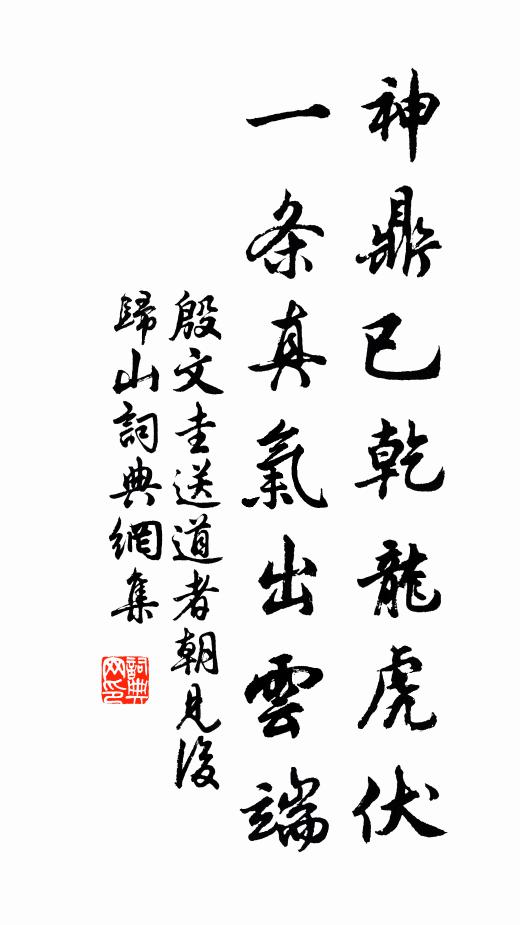 神鼎已乾龍虎伏
一条真氣出雲端
殷文圭送道者朝見後
歸山詞典網集
詞典网印